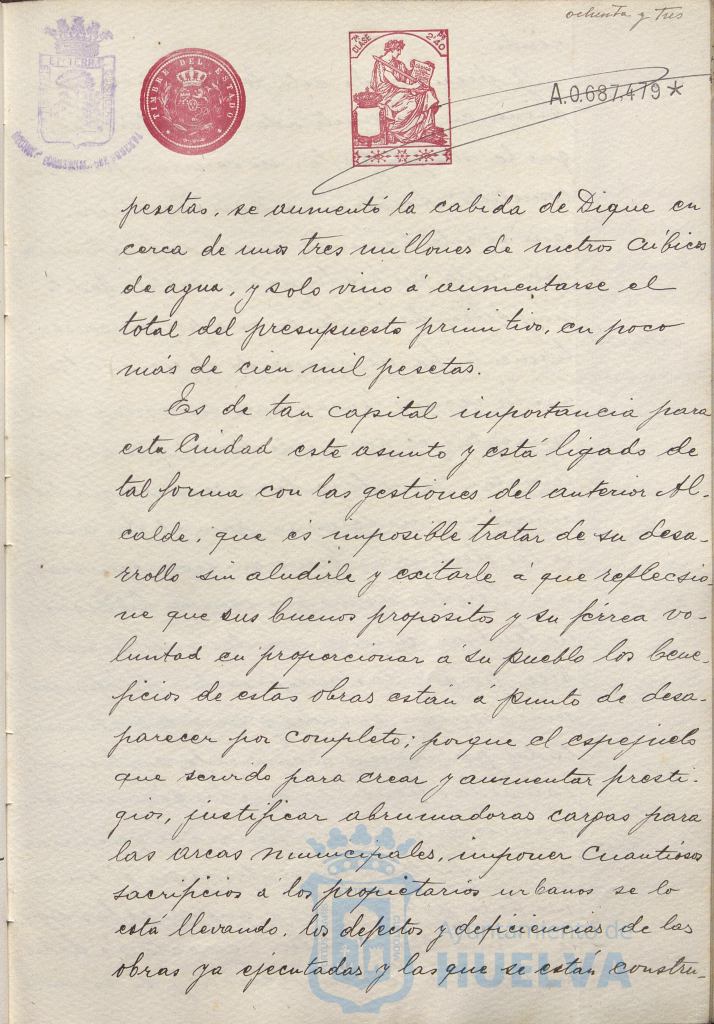 ochenta y tres
TIMBRE DEL ESTADO
CLASE 7ª
2'40
A.0.687.479*
pesetas, se aumentó la cabida de Dique en
cerca de unos tres millones de metros cúbicos
de agua, y solo vino á aumentarse el
total del presupuesto primitivo, en poco
más de cien mil pesetas.
Es de tan capital importancia para
esta Ciudad este asunto y está ligado de
tal forma con las gestiones del anterior Al-
calde, que és imposible tratar de su desa-
rrollo sin aludirle y exitarle á que reflecsio-
ne que sus buenos propósitos y su férrea vo-
luntad en proporcionar á su pueblo los bene-
ficios de estas obras están á punto de desa-
parecer por completo; porque el espejuelo
que servido para crear y aumentar presti-
gios, justificar abrumadoras cargas para
las arcas municipales, imponer cuantiosos
sacrificios á los propietarios urbanos se lo
está llevando, los defectos y deficiencias de las
obras ya ejecutadas y las que se están constru-
Ayuntamiento de
HUELVA